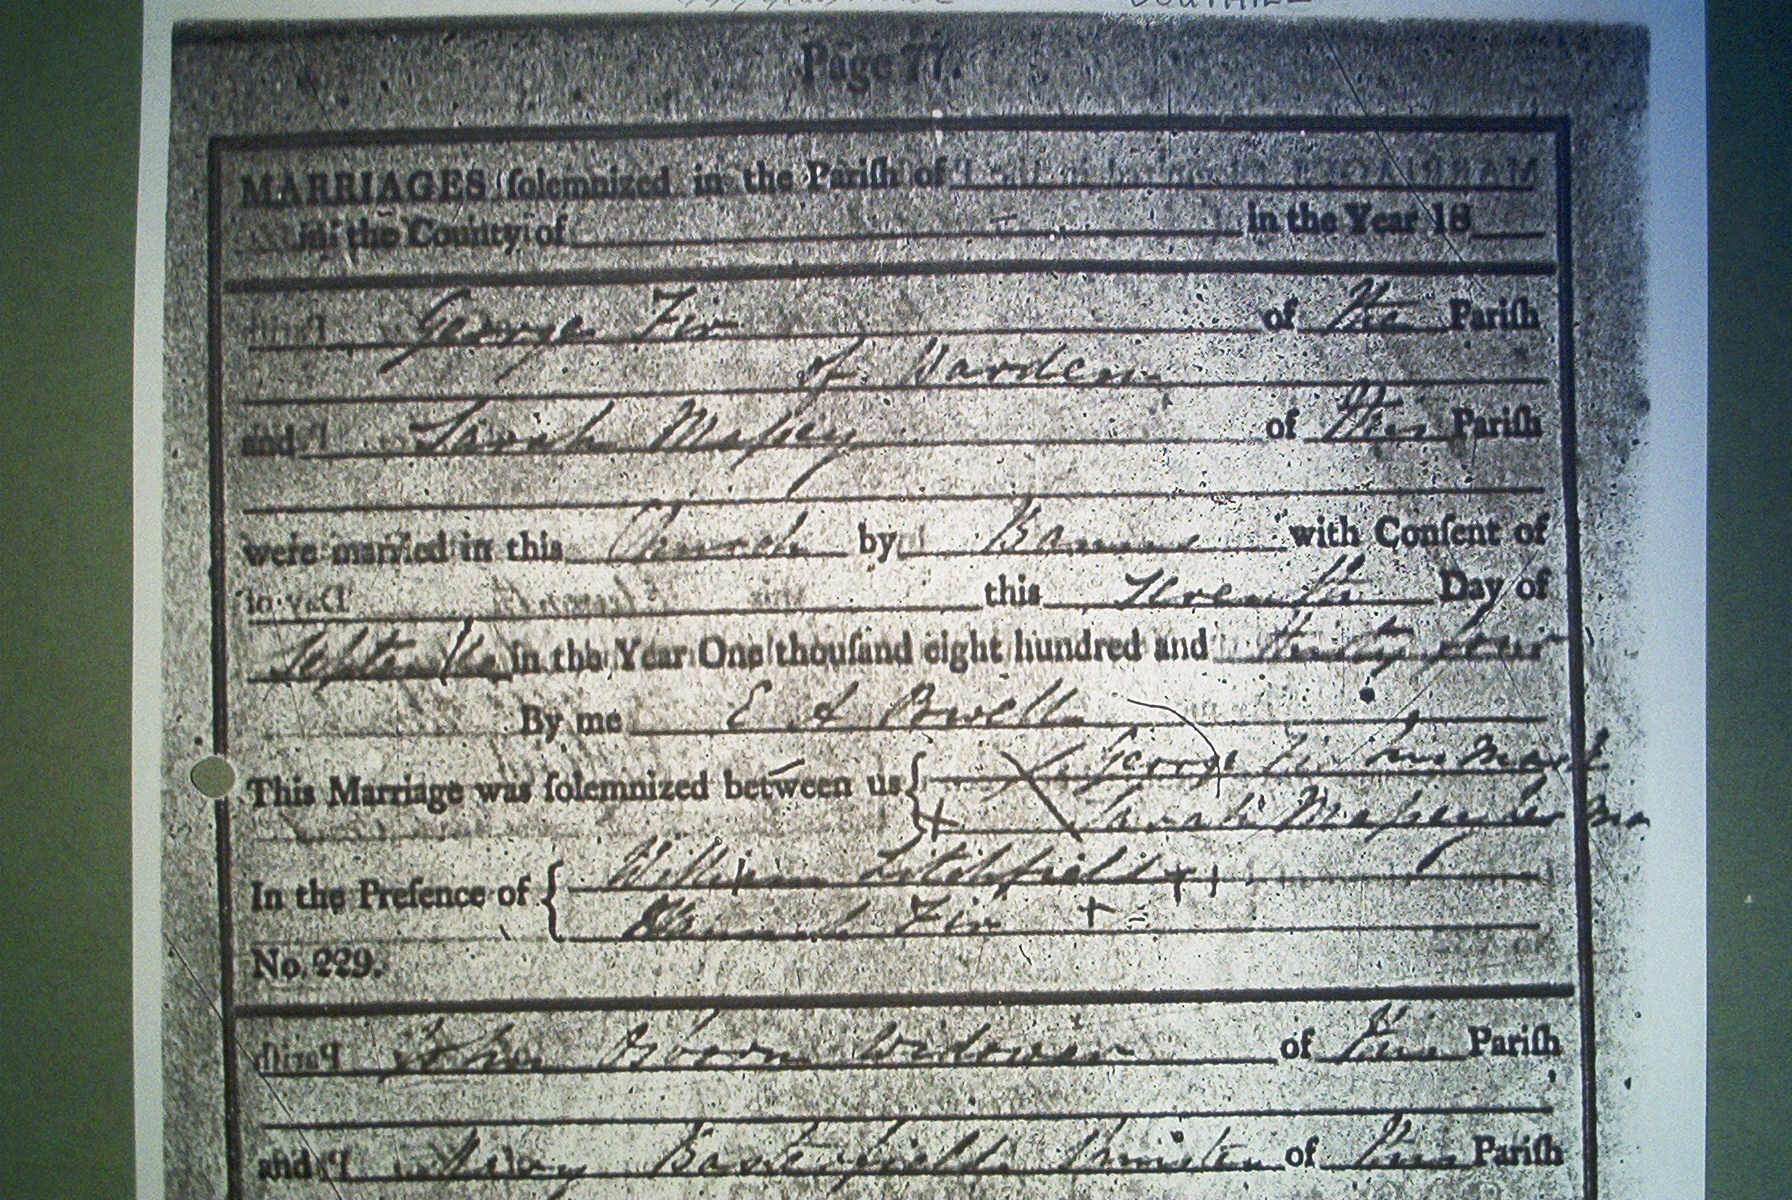 SOUTHILL
Page 77.
MARRIAGES ſolemnized in the Pariſh of
in the County of in the Year 18
George Fir of the Pariſh
of Warden
and Sarah Mapey of this Pariſh
were married in this Church by Banns with Conſent of
this Day of
September in the Year One thouſand eight hundred and thirty four
By me E A
This Marriage was ſolemnized between us { George Fir his Mark
+ Sarah Mapey her ma
In the Preſence of { William Litchfield +
Fir +
No. 229.
John Osborn Widower of this Pariſh
and Mary Spinster of this Pariſh